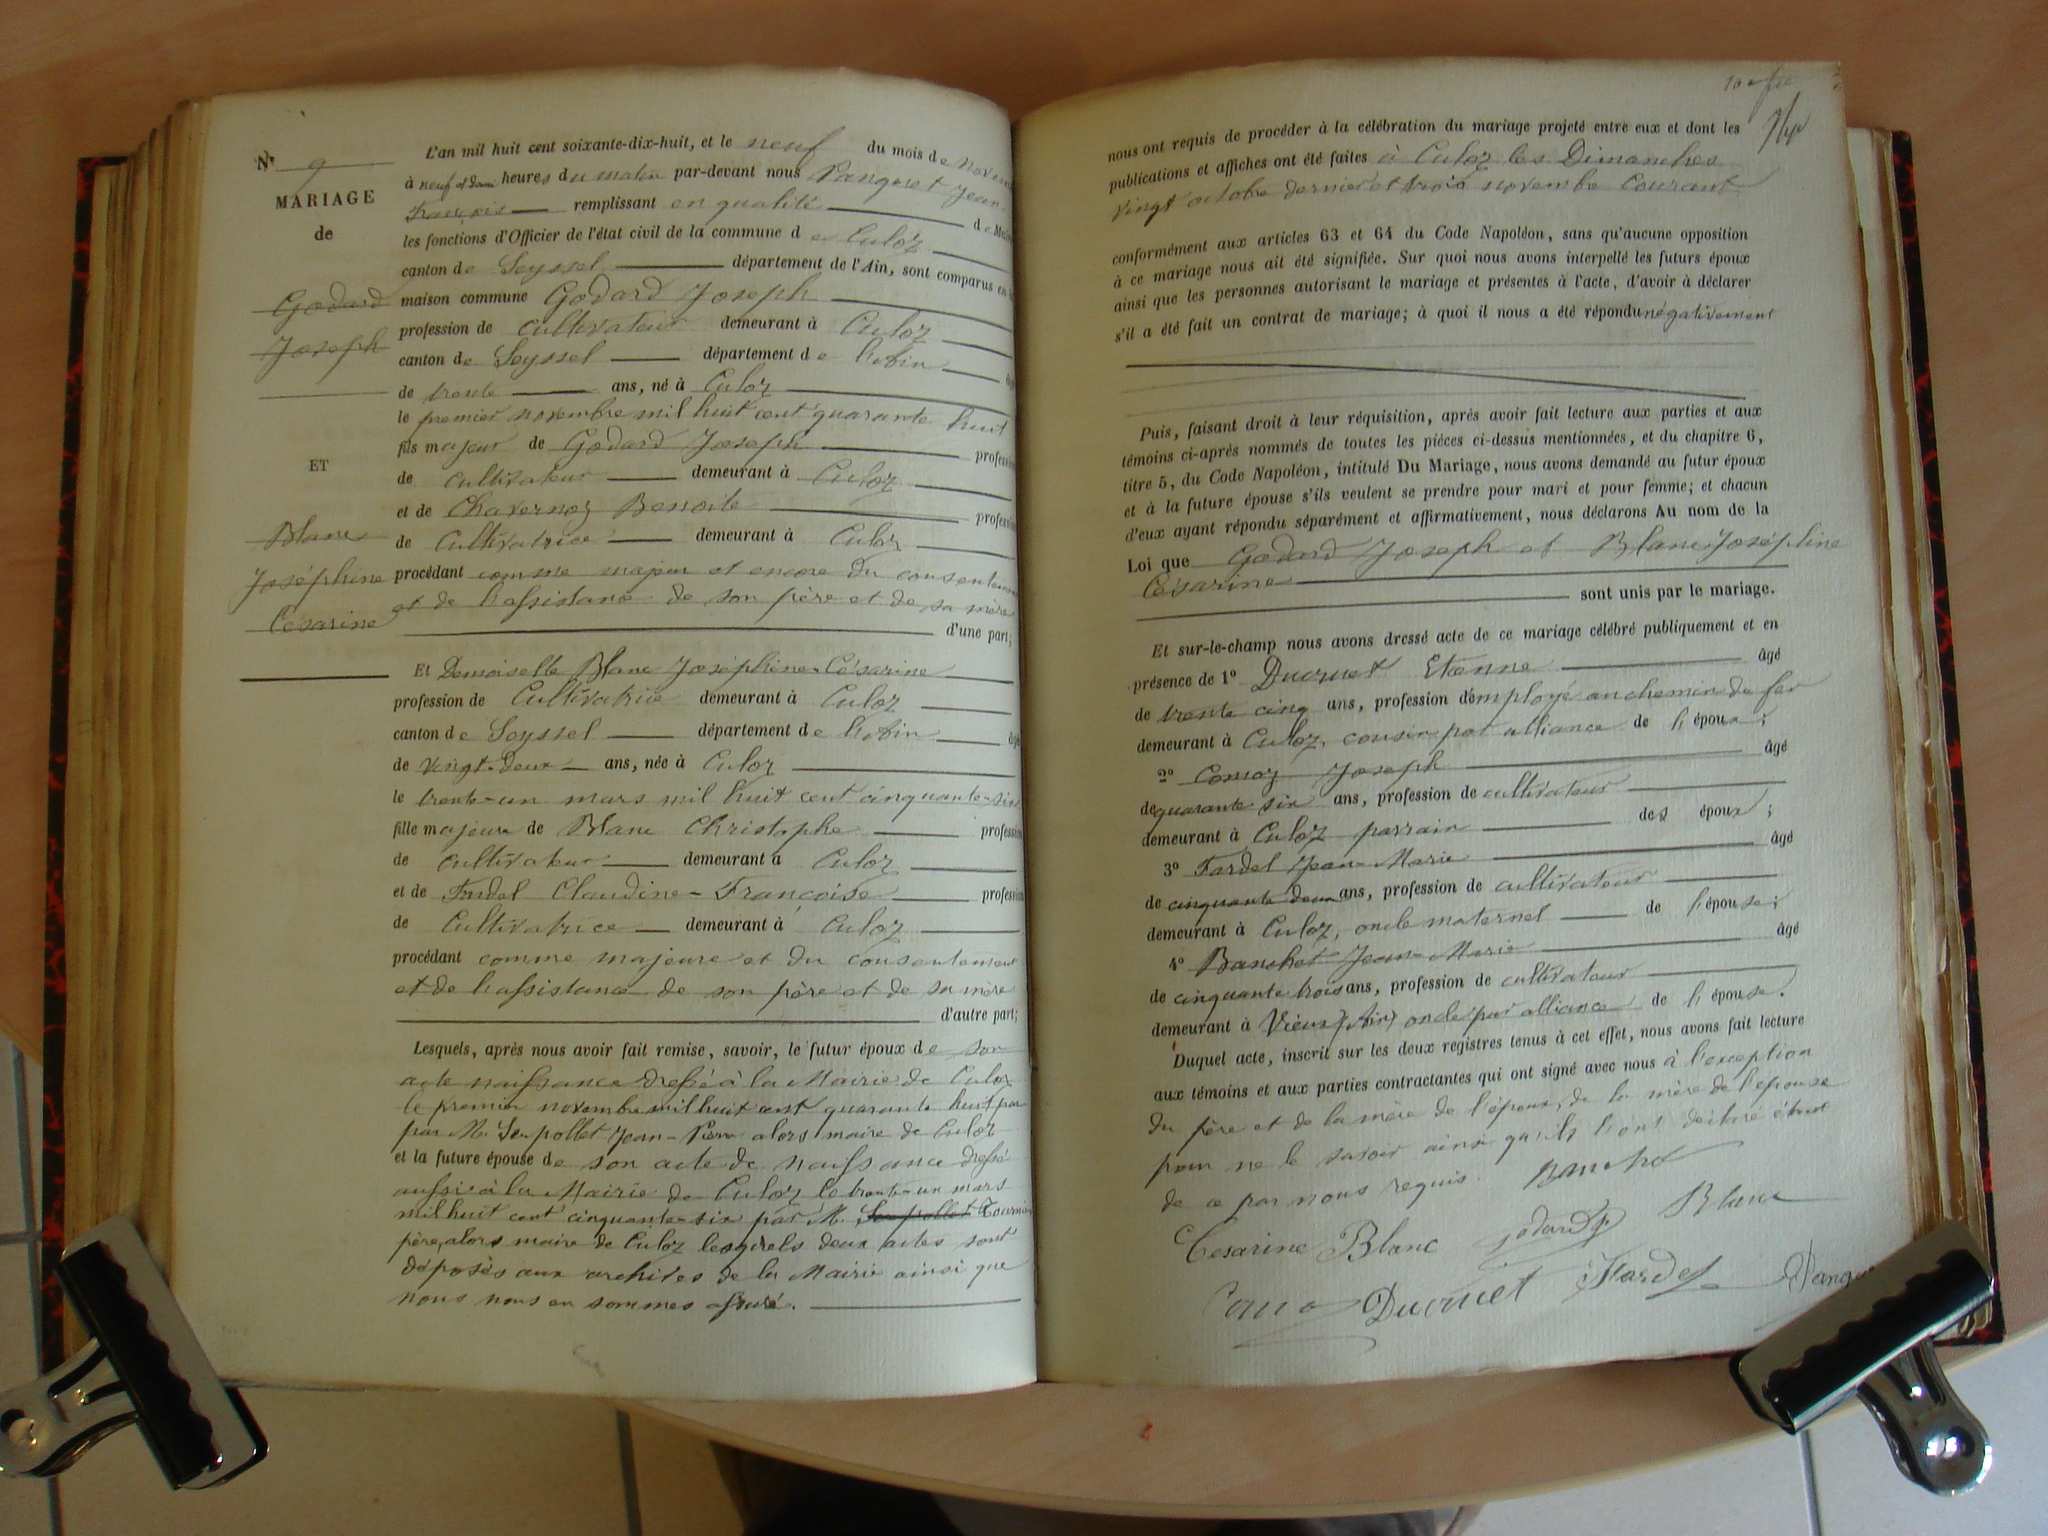 N° 9
MARIAGE
de
Godard
Joseph
ET
Blanc
Joséphine
Césarine
L'an mil huit cent soixante-dix-huit, et le neuf du mois de novem
à neuf et demi heures du matin par-devant nous Pangaut Jean
François remplissant en qualité de Mai
les fonctions d'Officier de l'état civil de la commune de Culoz
canton de Seyssel département de l'Ain, sont comparus en
maison commune Godard Joseph
profession de cultivateur demeurant à Culoz
canton de Seyssel département de l'Ain âgé
de trente ans, né à Culoz
le premier novembre mil huit cent quarante huit
fils majeur de Godard Joseph profession
de cultivateur demeurant à Culoz
et de Chavernoz Benoite profession
de Cultivatrice demeurant à Culoz
procédant comme majeur et encore du consentemen
et de l'assistance de son père et de sa mère
d'une part;
Et Demoiselle Blanc Joséphine-Césarine
profession de Cultivatrice demeurant à Culoz
canton de Seyssel département de l'Ain âgé
de vingt-deux ans, née à Culoz
le trente-un mars mil huit cent cinquante-six
fille majeure de Blanc Christophe profession
de cultivateur demeurant à Culoz
et de Fardel Claudine-Françoise profession
de Cultivatrice demeurant à Culoz
procédant comme majeure et du consentement
et de l'assistance de son père et de sa mère
d'autre part;
Lesquels, après nous avoir fait remise, savoir, le futur époux de son
acte naissance dressé à la Mairie de Culoz
le premier novembre mil huit cent quarante huit par
par M. Serpollet Jean-Pierre alors maire de Culoz
et la future épouse de son acte de naissance dressé
aussi à la Mairie de Culoz le trente-un mars
mil huit cent cinquante-six par M. Serpollet Tournier
père, alors maire de Culoz lesquels deux actes sont
déposés aux archives de la Mairie ainsi que
nous nous en sommes assuré.
nous ont requis de procéder à la célébration du mariage projeté entre eux et dont les
publications et affiches ont été faites à Culoz les Dimanches
vingt octobre dernier et trois novembre courant
conformément aux articles 63 et 64 du Code Napoléon, sans qu'aucune opposition
à ce mariage nous ait été signifiée. Sur quoi nous avons interpellé les futurs époux
ainsi que les personnes autorisant le mariage et présentes à l'acte, d'avoir à déclarer
s'il a été fait un contrat de mariage; à quoi il nous a été répondu négativement
Puis, faisant droit à leur réquisition, après avoir fait lecture aux parties et aux
témoins ci-après nommés de toutes les pièces ci-dessus mentionnées, et du chapitre 6,
titre 5, du Code Napoléon, intitulé Du Mariage, nous avons demandé au futur époux
et à la future épouse s'ils veulent se prendre pour mari et pour femme; et chacun
d'eux ayant répondu séparément et affirmativement, nous déclarons Au nom de la
Loi que Godard Joseph et Blanc Joséphine
Césarine
sont unis par le mariage.
Et sur-le-champ nous avons dressé acte de ce mariage célébré publiquement et en
présence de 1° Ducruet Etienne âgé
de trente cinq ans, profession d'employé au chemin de fer
demeurant à Culoz, cousin par alliance de l'époux;
2° Comoz Joseph âgé
de quarante six ans, profession de cultivateur
demeurant à Culoz parrain des époux;
3° Fardel Jean-Marie âgé
de cinquante deux ans, profession de cultivateur
demeurant à Culoz, oncle maternel de l'épouse;
4° Banchet Jean-Marie âgé
de cinquante trois ans, profession de cultivateur
demeurant à Vieux (Ain) oncle par alliance de l'épouse.
Duquel acte, inscrit sur les deux registres tenus à cet effet, nous avons fait lecture
aux témoins et aux parties contractantes qui ont signé avec nous à l'exception
du père et de la mère de l'époux, de la mère de l'épouse
pour ne le savoir ainsi qu'ils l'ont déclaré étant
de ce par nous requis. Banchet
Cesarine Blanc godard j Blanc
Comoz Ducruet J Fardel Pangau